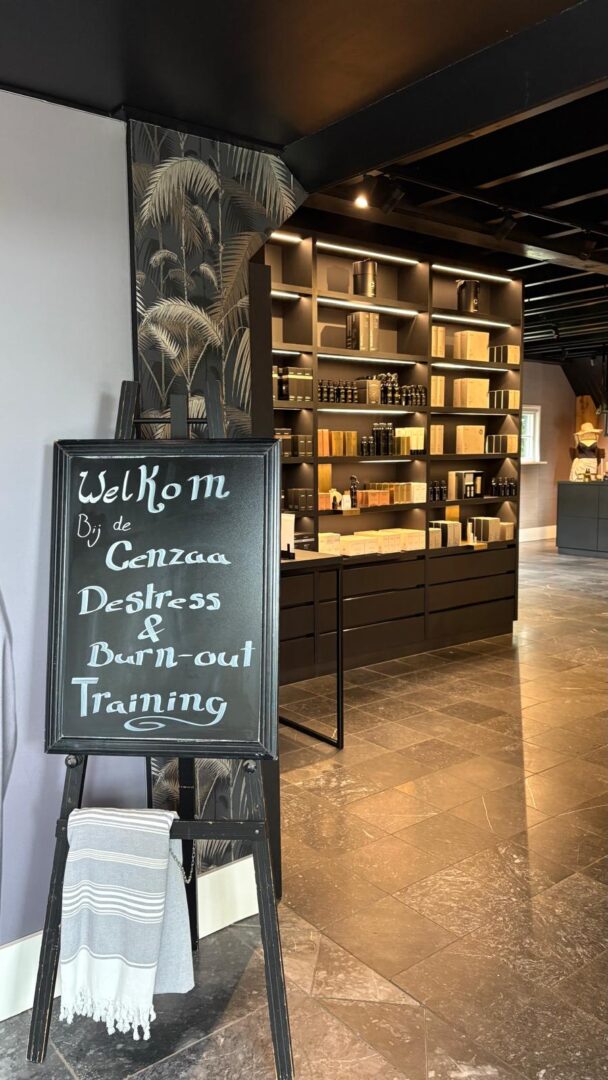 Welkom
Bij de
Cenzaa
Destress
&
Burn-out
Training